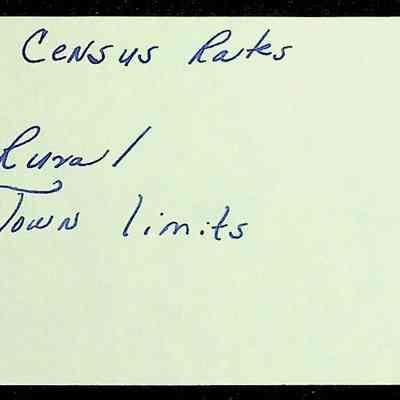 Census Rates
Rural
Town limits